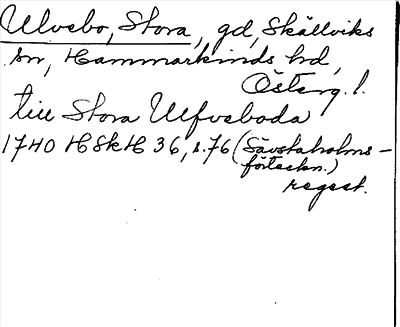 Ulvebo, Stora, gd, Skällviks
sn, Hammarkinds hd,
Österg. l.
till Stora Ulfveboda
1740 HSkH 36, s. 76 (Sävstaholms-
förteckn.)
regest.